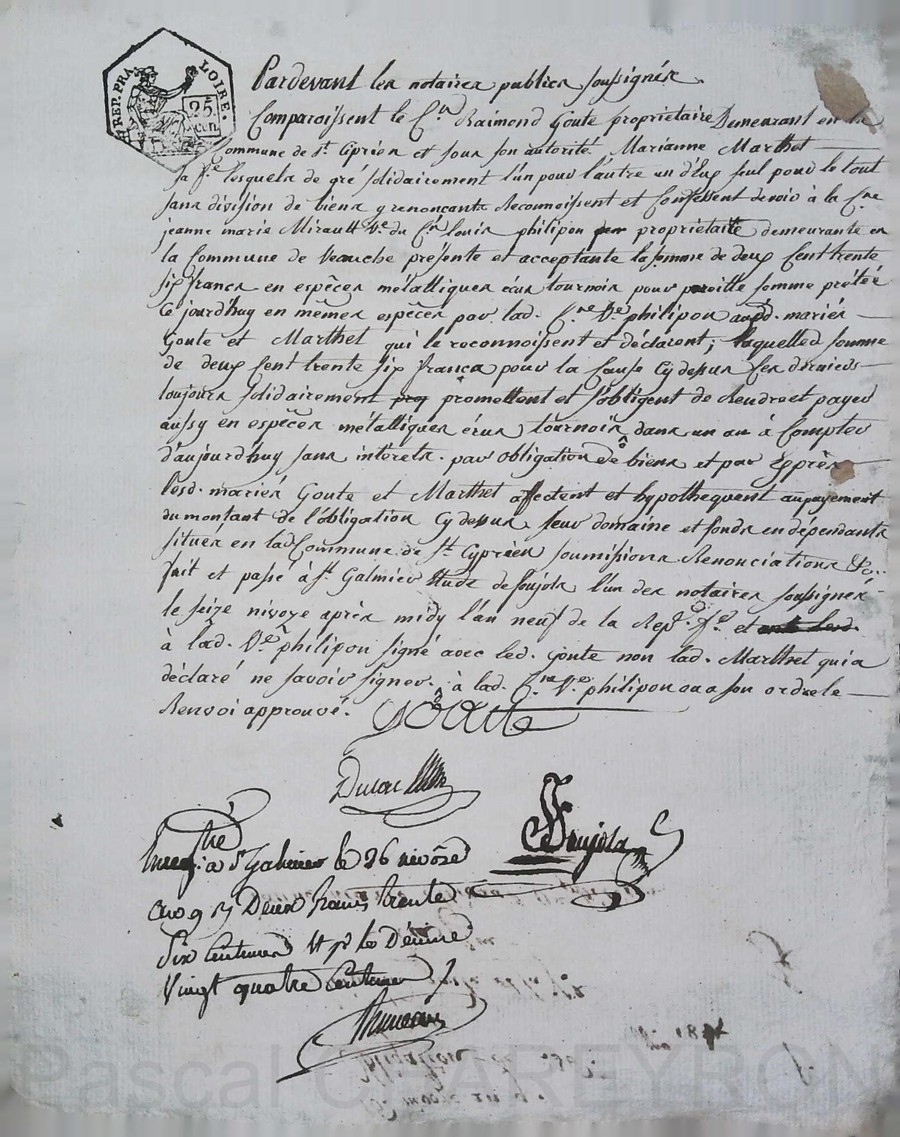 REP. FRA. LOIRE.
25 cen.
Pardevant les notaires publics soussignés
Comparoissent le C.en Raimond Goute propriétaire Demeurant en la
Commune de St. Ciprien et sous son autorité, Marianne Marthet
sa f.e lesquels de gré solidairement l'un pour l'autre un d'Eux seul pour le tout
sans division de biens y renoncants Reconnoissent et Confessent devoir à la C.ne
jeanne marie Mirault V.e du C.en Louis philipon propriétaire demeurante en
la Commune de Veauche présente et acceptante la somme de deux Cent trente
six francs en espèces métalliques écus tournois pour pareille somme prétée
Ce jourd'huy en mêmes espèces par lad. C.ne V.e philipon auxd. mariés
Goute et Marthet qui le reconnoissent et déclarent; laquelle d. somme
de deux Cent trente six francs pour la Cause Cy dessus Ces derniers
toujours solidairement promettent et s'obligent de Rendre et payer
aussy en espèces métalliques écus tournois dans un an à Compter
d'aujourd'huy sans intérets. par obligation de biens et par Exprès
lesd. mariés Goute et Marthet affectent et hypothequent au payement
du montant de l'obligation Cy dessus leur domaine et fonds en dépendants
situés en lad. Commune de St. Cyprien soumissions Renonciations &c..
fait et passé à St. Galmier Etude de Soujols l'un des notaires soussignés
le seize nivose après midy l'an neuf de la Rep. f.se et
à lad. V.e philipon signé avec led. Goute non lad. Marthet qui a
déclaré ne savoir signer. à lad. C.ne V.e philipon ou a son ordre le
Renvoi approuvé. Goute
Soujols
Enreg.tré a St Galmier le 26 nivôse
an 9 Deux francs trente
Six Centimes et pr le Décime
Vingt quatre Centimes
Pascal CHAREYRON